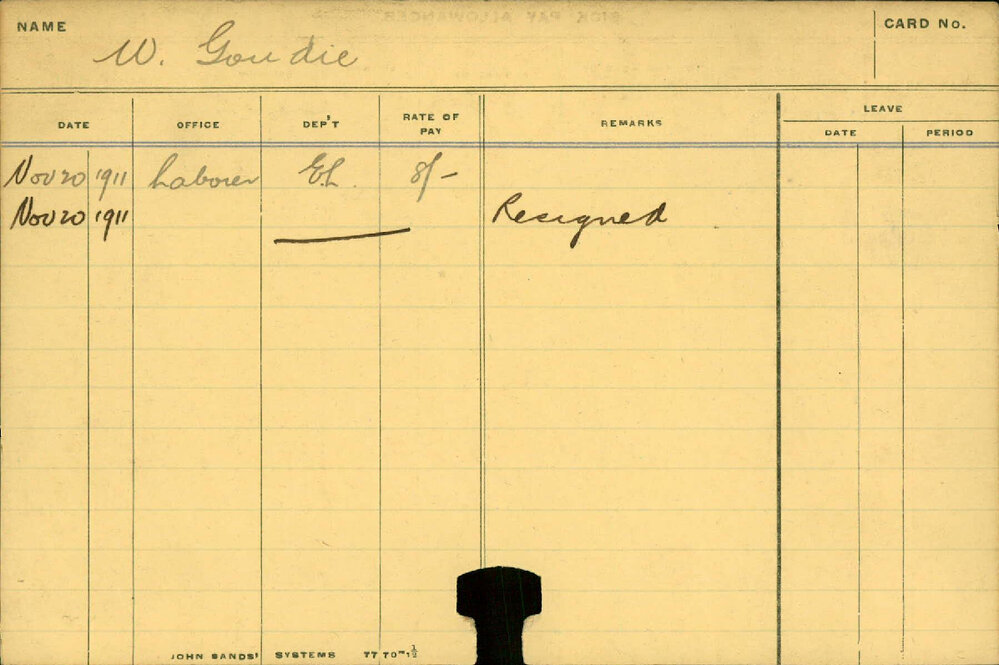 NAME W. Goudie CARD No.
LEAVE
DATE OFFICE DEP'T RATE OF PAY REMARKS DATE PERIOD
Nov 20 1911 Laborer EL. 8/-
Nov 20 1911 Resigned
JOHN SANDS' SYSTEMS 7770